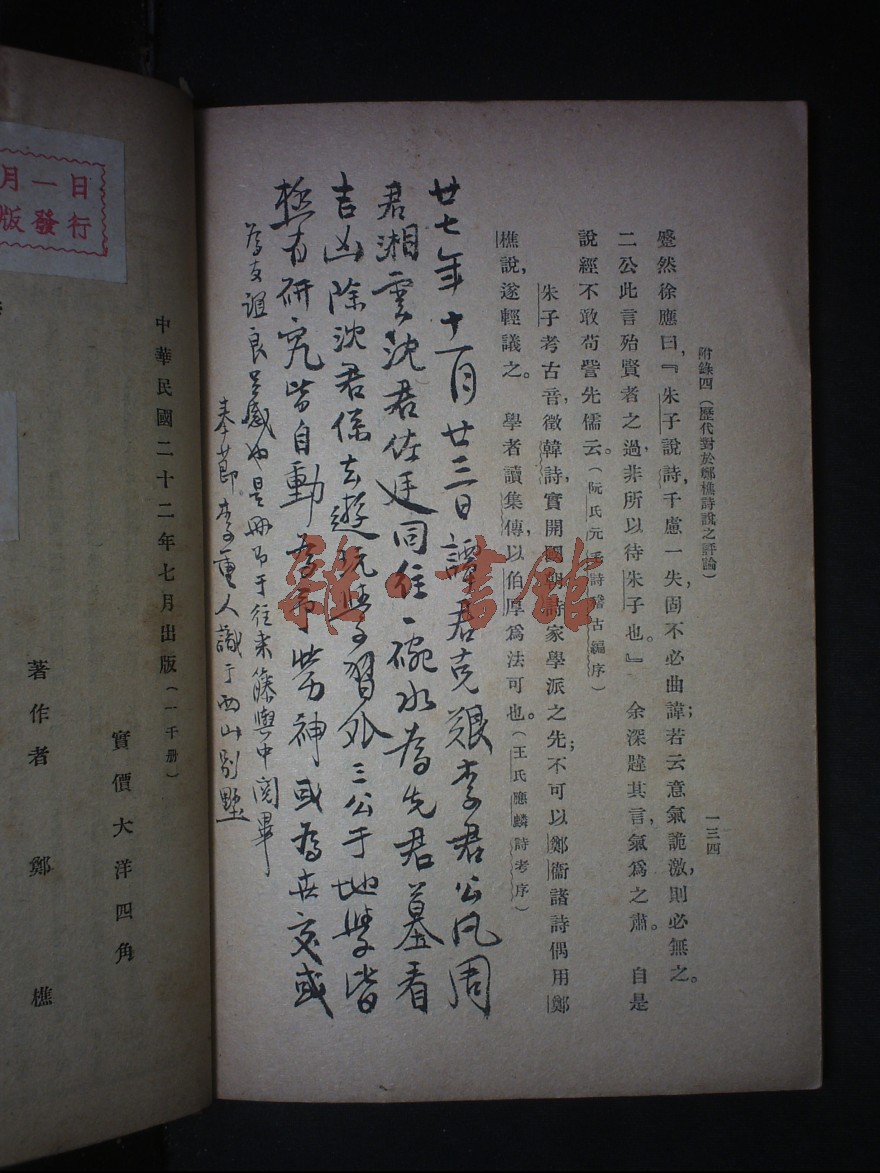 附錄四（歷代對於鄭樵詩說之評論）
一三四
蹙然徐應曰，『朱子說詩，千慮一失，固不必曲諱；若云意氣詭激，則必無之。
二公此言殆賢者之過，非所以待朱子也。』　余深韙其言，氣爲之肅。　自是
說經不敢苟訾先儒云。（阮氏元毛詩稽古編序）
朱子考古音，徵韓詩，實開國朝詩家學派之先；不可以鄭衞諸詩偶用鄭
樵說，遂輕議之。　學者讀集傳，以伯厚爲法可也。（王氏應麟詩考序）
廿七年十一月廿三日譚君克艱李君公凡周
君湘雲沈君佐廷同往一碗水為先君墓看
吉凶除沈君係去遊玩學習外三公于地學皆
極有研究皆自動為予勞神或為世交或
為友誼良是感也是冊即于往来籐輿中閱畢
奉節李重人識于西山別墅
雜·書館
月一日
版發行
中華民國二十二年七月出版（一千册）
實價大洋四角
著作者　鄭　樵